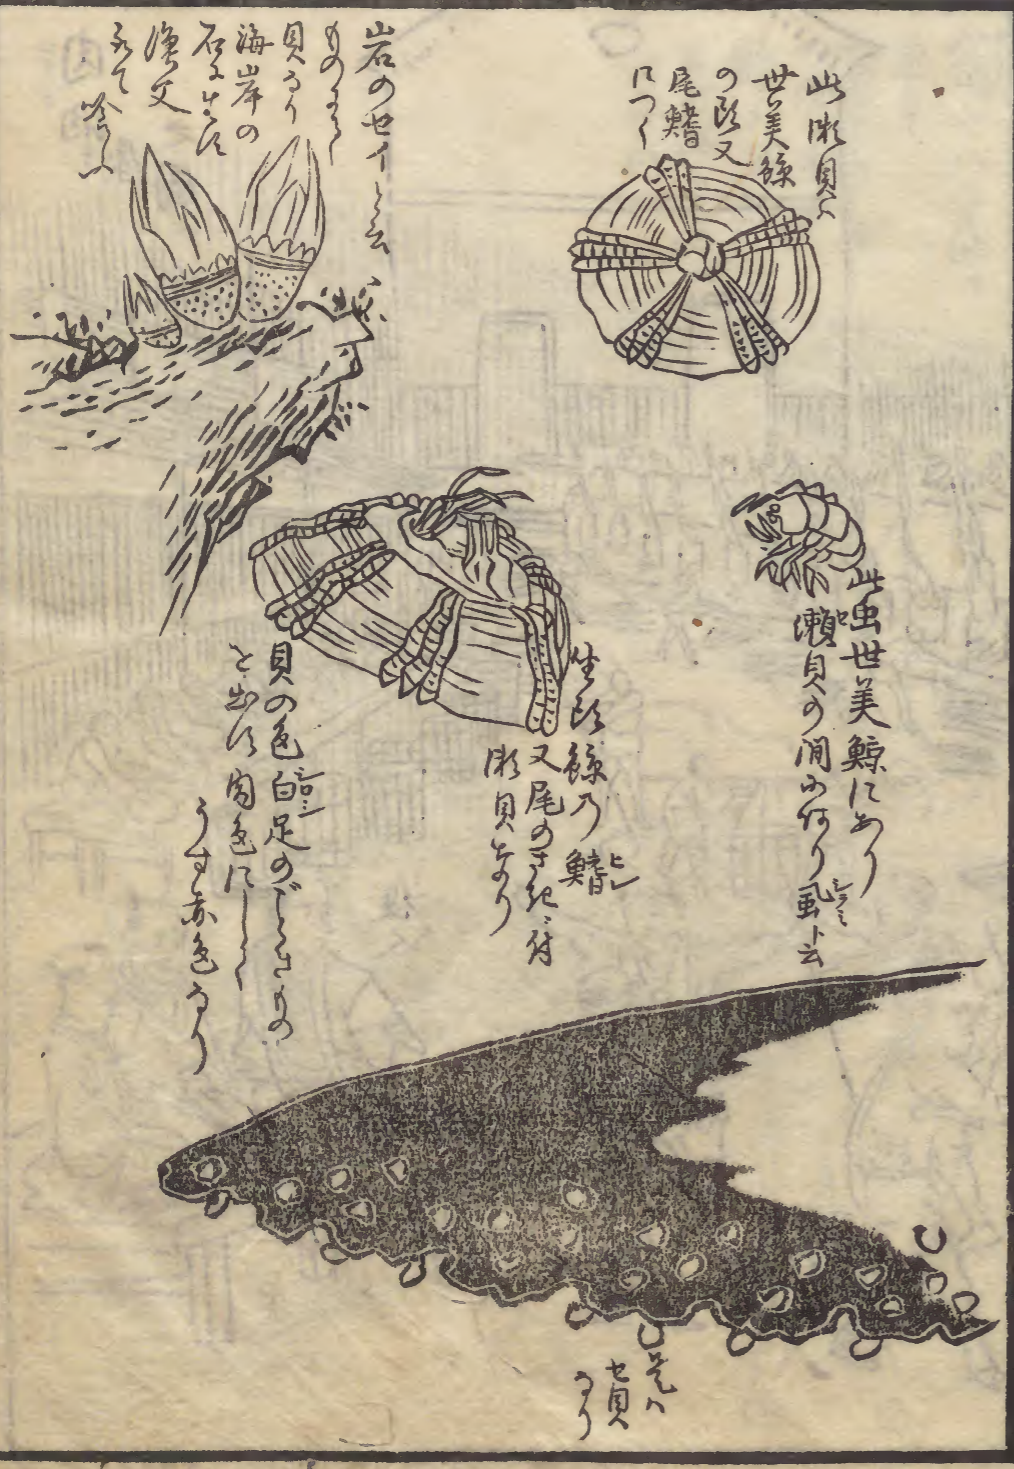 此瀬貝ハ
世美鯨
の頭又
尾鰭
につく
岩のセイと云
ものにて
貝なり
海岸の
石に生ず
漁人
取て喰ふ
此虫世美鯨にあり
瀬貝の間に有り風ト云
セ
シラミ
生頭鯨乃鰭
ヒレ
又尾のさきに付
瀬貝なり
貝の色白足のごときもの
シロシ
を出す肉色にして
うす赤色なり
是ハ
セ貝
なり